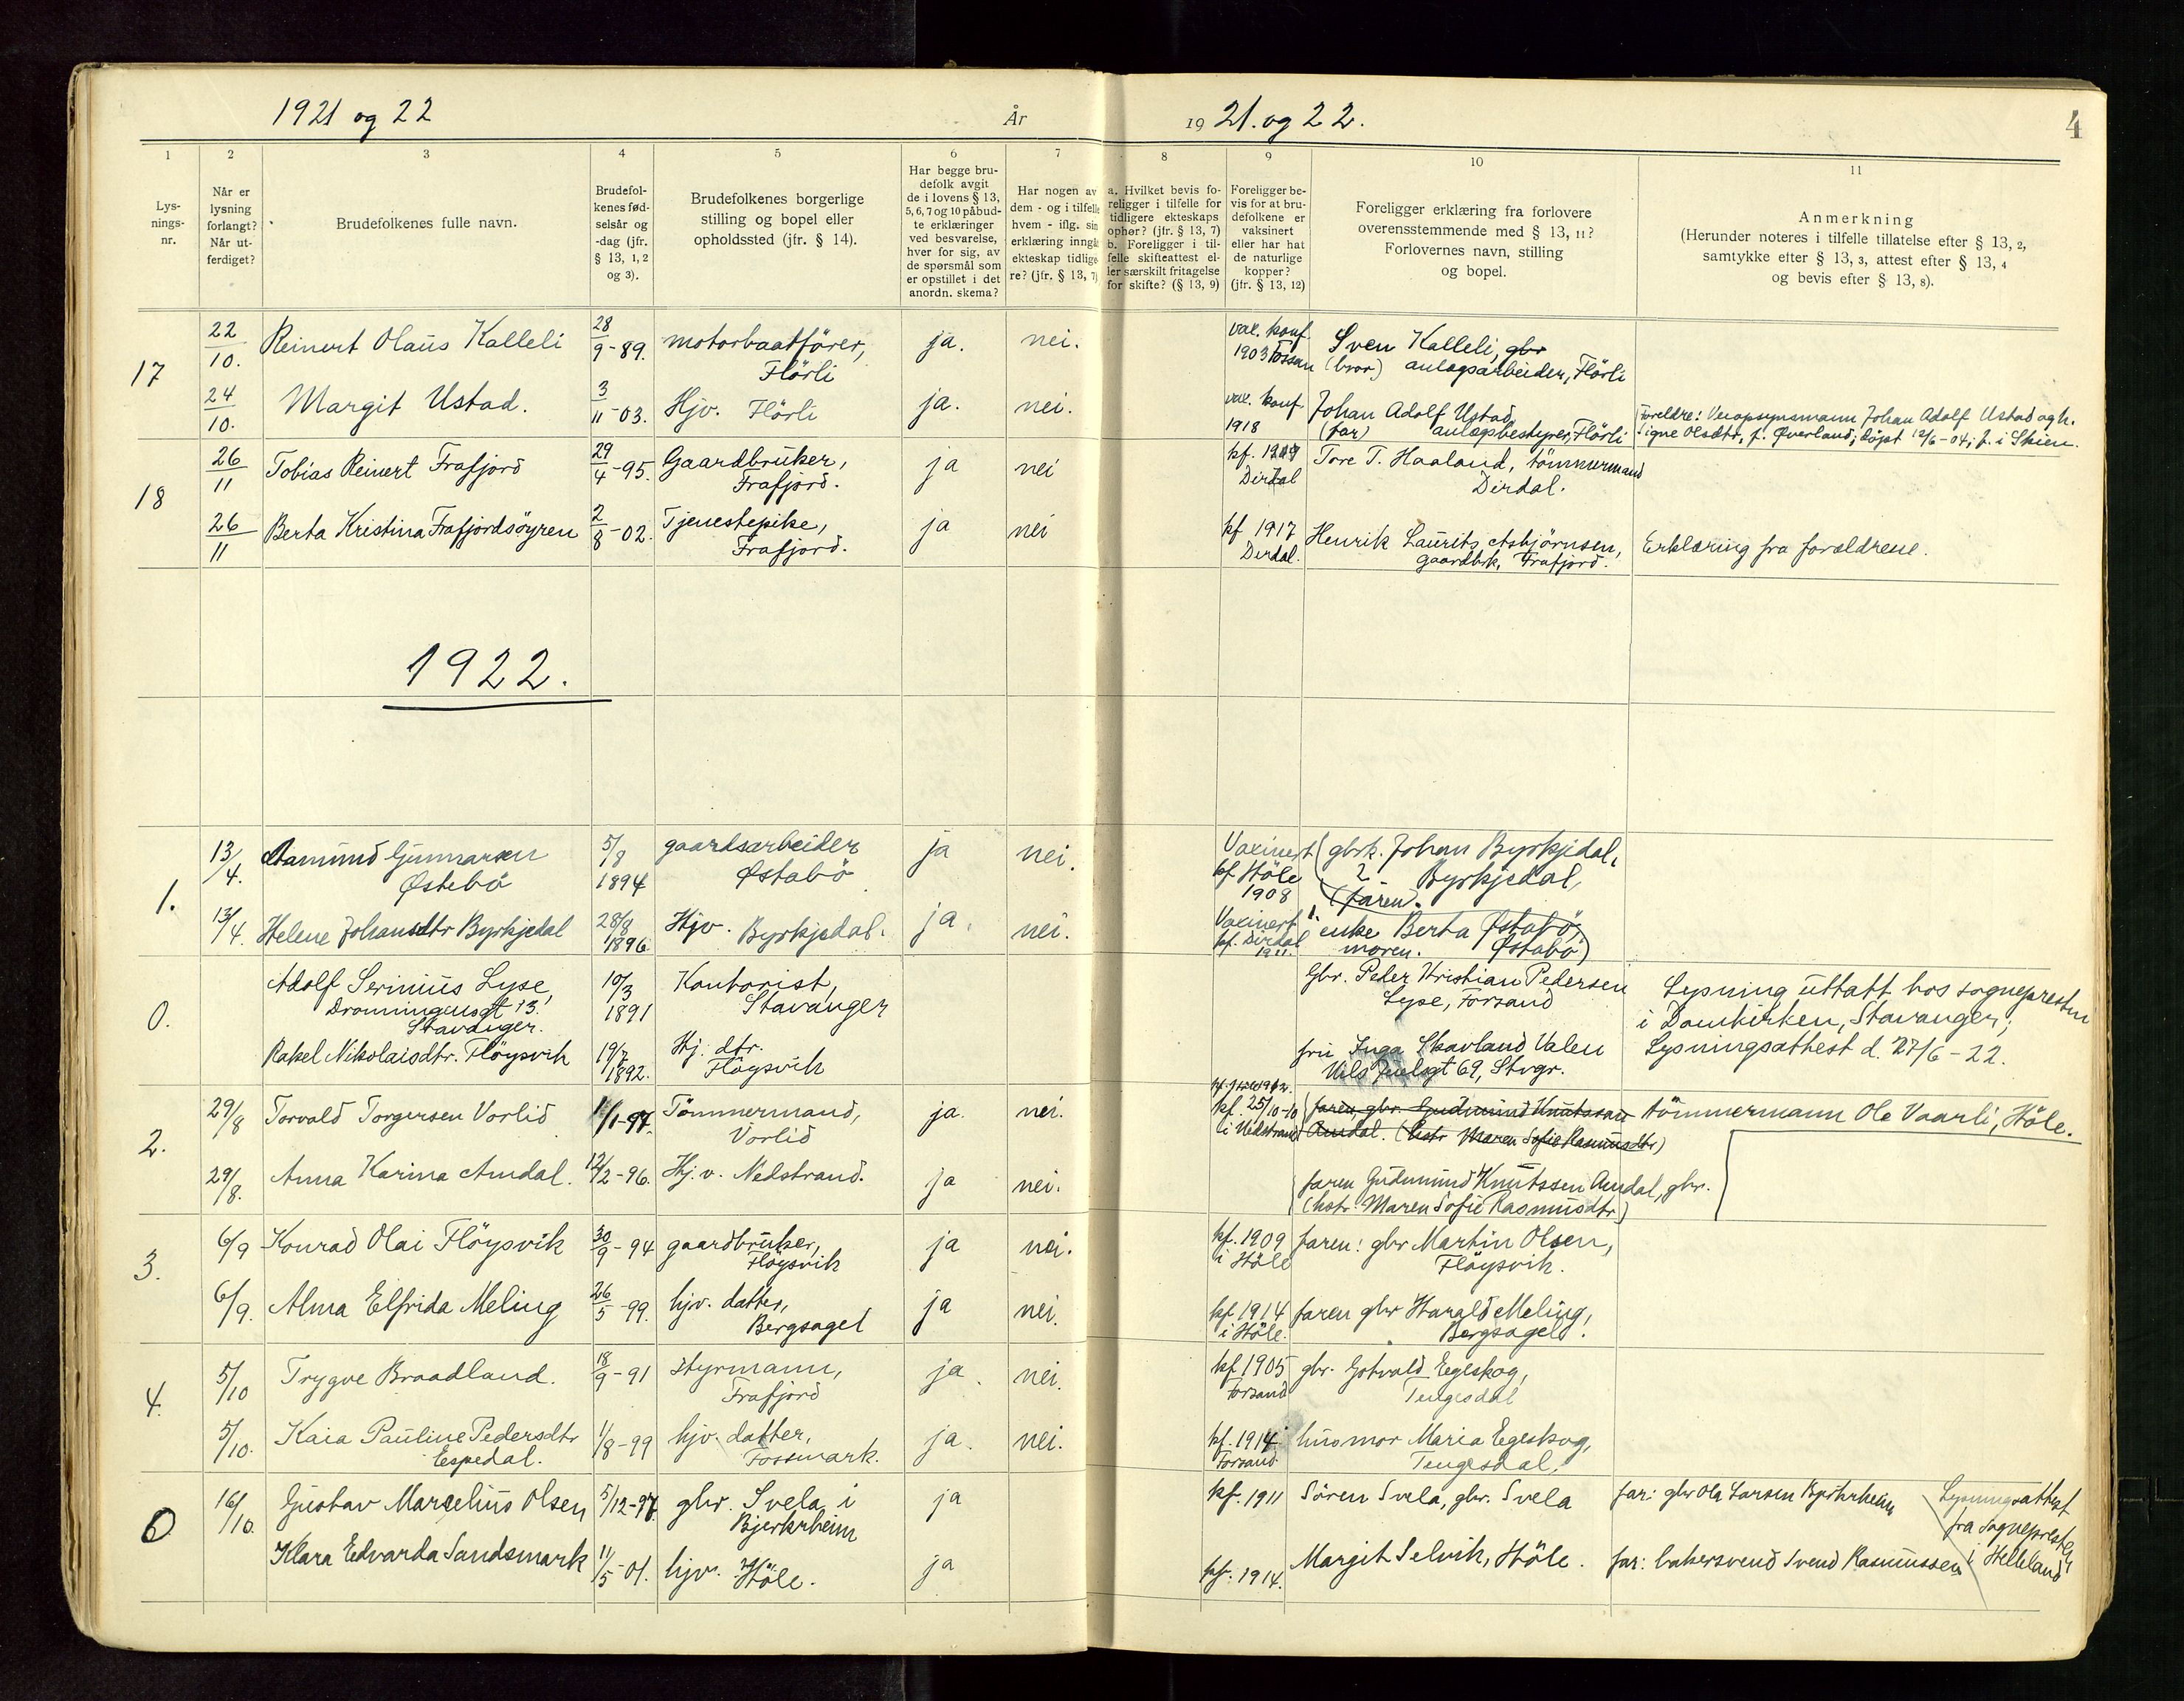 1921 og 22
År
19 21. og 22.
4
1
2
3
4
5
6
7
8
9
10
11
Lys-
nings-
nr.
Når er
lysning
forlangt?
Når ut-
ferdiget?
Brudefolkenes fulle navn.
Brudefol-
kenes fød-
selsår og
-dag (jfr.
§ 13, 1, 2
og 3).
Brudefolkenes borgerlige
stilling og bopel eller
opholdssted (jfr. § 14).
Har begge bru-
defolk avgit
de i lovens § 13,
5, 6, 7 og 10 påbud-
te erklæringer
ved besvarelse,
hver for sig, av
de spørsmål som
er opstillet i det
anordn. skema?
Har nogen av
dem - og i tilfelle
hvem - iflg. sin
erklæring inngåt
ekteskap tidlige-
re? (jfr. § 13, 7)
a. Hvilket bevis fo-
religger i tilfelle for
tidligere ekteskaps
ophør? (jfr. § 13, 7)
b. Foreligger i til-
felle skifteattest el-
ler særskilt fritagelse
for skifte? (§ 13, 9)
Foreligger be-
vis for at bru-
defolkene er
vaksinert
eller har hat
de naturlige
kopper?
(jfr. § 13, 12)
Foreligger erklæring fra forlovere
overensstemmende med § 13, 11?
Forlovernes navn, stilling
og bopel.
Anmerkning
(Herunder noteres i tilfelle tillatelse efter § 13, 2,
samtykke efter § 13, 3, attest efter § 13, 4
og bevis efter § 13, 8).
17
22/10. Reinert Olaus Kalleli 28/9-89. motorbaatförer, ja. nei. vac. konf. Sven Kalleli, gbr
Flörli 1903 Fossan (bror) anlægsarbeider, Flörli
24/10. Margit Ustad. 3/11-03. Hjv. Flörli ja. nei. vac. konf. Johan Adolf Ustad, Foreldre: Veiopsynsmann Johan Adolf Ustad og h.
1918 (far) anlægsbestyrer, Flörli Signe Olsdtr, f. Øverland; döpt 12/6-04; f. i Skien.
18
26/11 Tobias Reinert Frafjord 29/4-95. Gaardbruker, ja nei kf. Tore T. Haaland, tömmermand
Frafjord. Dirdal Dirdal.
26/11 Berta Kristina Frafjordsöyren 2/8-02. Tjenestepike, ja nei kf 1917 Henrik Laurits Asbjörnsen, Erklæring fra forældrene.
Frafjord. Dirdal. gaardbrk, Frafjord.
1922.
1.
13/4. Aamund Gunnarsen 5/8 gaardsarbeider ja nei. Vaxinert (gbrk. Johan Byrkjedal,
Østebö 1894 Østabö kf Höle 2. Byrkjedal,
1908 (faren).
13/4. Helene Johansdtr Byrkjedal 28/8 Hjv. Byrkjedal. ja. nei. Vaxinert 1. enke Berta Østabö,
1896 kf. Dirdal moren. Østabö)
1911.
0.
Adolf Serinius Lyse, 10/3 Kontorist, Gbr. Peder Kristian Pedersen Lysning uttatt hos sognepresten
Dronningensgt 13. 1891 Stavanger Lyse, Forsand i Domkirken, Stavanger;
Stavanger.
Rakel Nikolaisdtr. Flöysvik 19/7 Hj. dtr. fru Inga Skavland Valen Lysningsattest d. 27/6-22.
1892. Flöysvik Nils Juelsgt 69, Stvgr.
2.
29/8 Torvald Torgersen Vorlid 1/1-97. Tömmermand, ja. nei. kf. 25/10-10 faren, gbr. Gudmund Knutssen tömmermann Ole Vaarli, Höle.
Vorlid i Nedstrand Amdal. (hstr Maren Sofie Rasmusdtr)
29/8. Anna Karina Amdal. 12/2-96. Hj.v. Nedstrand. ja nei. faren Gudmund Knutssen Amdal, gbr.
(hstr. Maren Sofie Rasmusdtr)
3.
6/9 Konrad Olai Flöysvik 30/9-94 gaardbruker, ja nei. kf. 1909 faren: gbr Martin Olsen,
Flöysvik i Höle Flöysvik.
6/9. Alma Elfrida Meling 26/5-99. hjv. datter, ja nei. kf. 1914 faren gbr Harald Meling,
Bergsagel i Höle. Bergsagel.
4.
5/10 Trygve Braadland. 18/9-91 styrmann, ja. nei. kf 1905 gbr. Gotvald Egeskog,
Frafjord Forsand Tengesdal
5/10. Kaia Pauline Pedersdtr 1/8-99 hjv. datter, ja. nei. kf. 1914 husmor Maria Egeskog,
Espedal. Fossmark. Forsand Tengesdal.
0
16/10. Gustav Marselius Olsen 5/12-97. gbr. Svela i ja kf. 1911 Sören Svela, gbr. Svela far: gbr Ole Larsen Bjerkrheim Lysningsattest
Bjerkrheim fra sognepresten
Klara Edvarda Sandsmark 11/5-01. hjv. Höle. ja kf. 1914. Margit Selvik, Höle. far: bakersvend Svend Rasmussen i Helleland